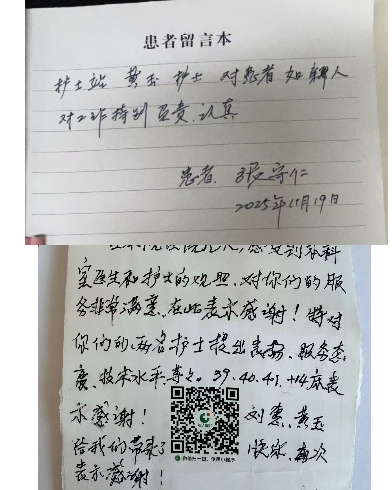 患者留言本
护士站 黄玉 护士 对患者如亲人
对工作特别负责,认真
患者 张守仁
2025年11月19日
室医生和护士的观照,对你们的服
务非常满意,在此表示感谢!特对
你们的两名护士提出表扬,服务态
度、技术水平等之。39.40.41.+14床表
示感谢! 刘惠、黄玉
给我们带来了 快乐,再次
表示感谢!